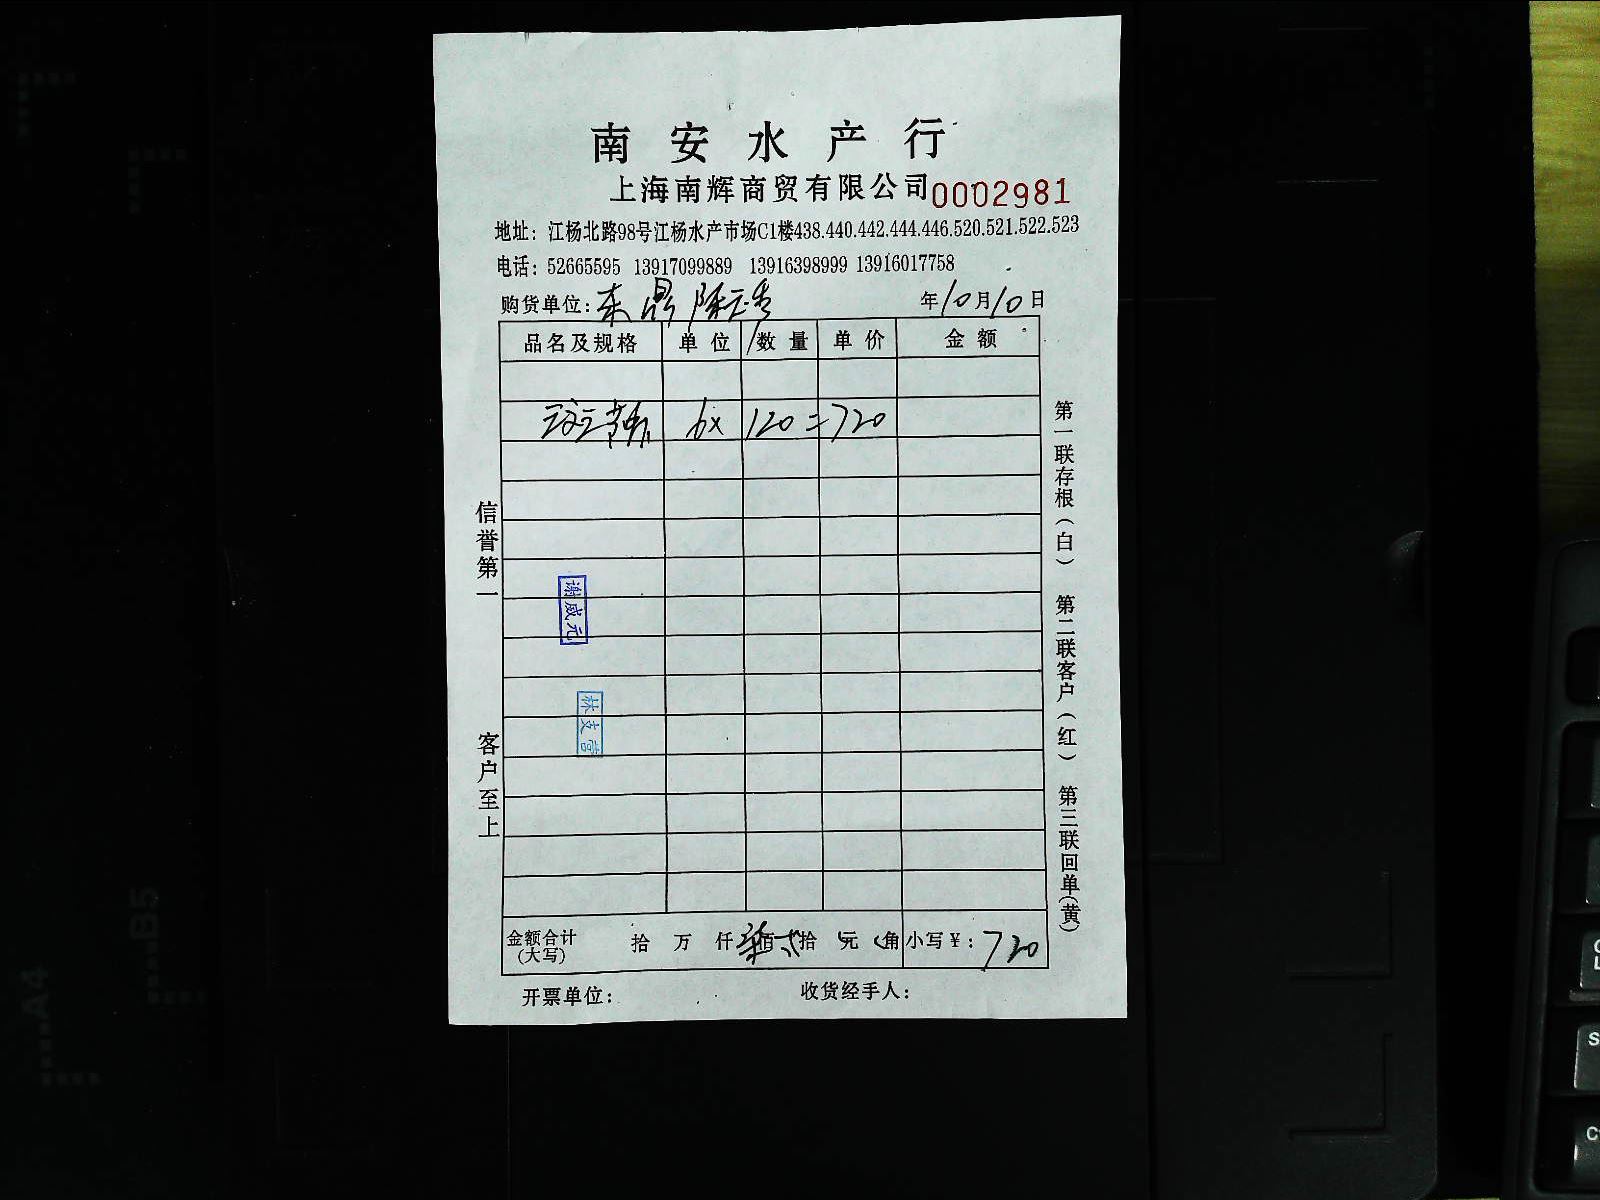 南安水产行
上海南辉商贸有限公司 0002981
地址：江杨北路98号江杨水产市场C1楼438.440.442.444.446.520.521.522.523
电话：52665595 13917099889 13916398999 13916017758
购货单位：东 年10月10日
品名及规格 单位 数量 单价 金额
斑节 6× 120=720
信誉第一
客户至上
谢咸元
林支营
第一联存根（白） 第二联客户（红） 第三联回单（黄）
金额合计（大写） 拾 万 仟 柒佰 贰拾 元 角 小写￥：720
开票单位： 收货经手人：
B5
A4